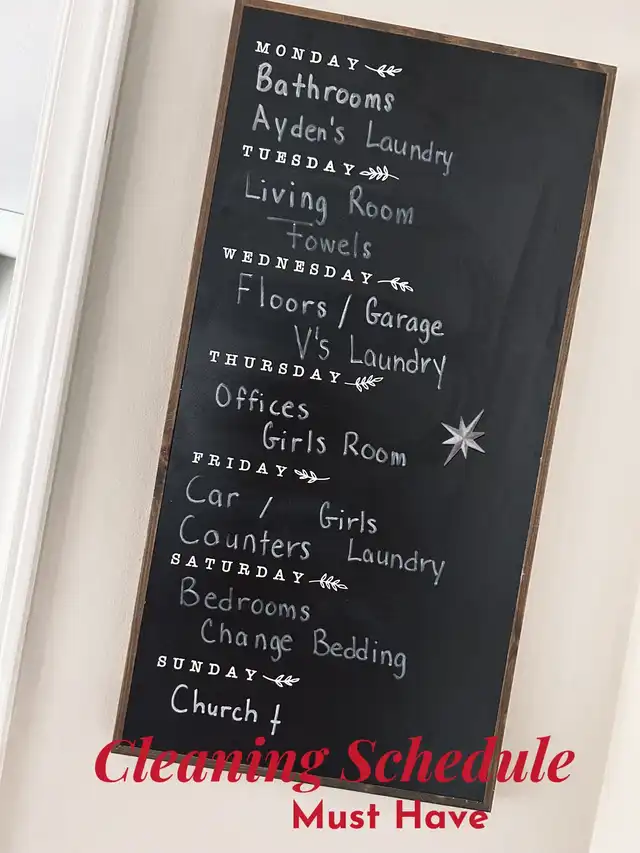 MONDAY
Bathrooms
Ayden's Laundry
TUESDAY
Living Room
Towels
WEDNESDAY
Floors / Garage
V's Laundry
THURSDAY
Offices
Girls Room
FRIDAY
Car / Girls
Counters Laundry
SATURDAY
Bedrooms
Change Bedding
SUNDAY
Church
Cleaning Schedule
Must Have